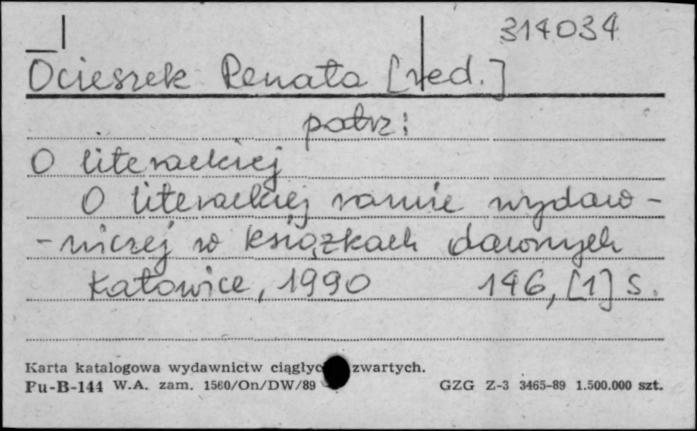 314034
Ocieszek Renata [red.]
patrz:
O literackiej
O literackiej ramie wydaw-
-niczej w książkach dawnych
Katowice, 1990 146, [1] s.
Karta katalogowa wydawnictw ciągłyc zwartych.
Pu-B-144 W.A. zam. 1560/On/DW/89 GZG Z-3 3465-89 1.500.000 szt.